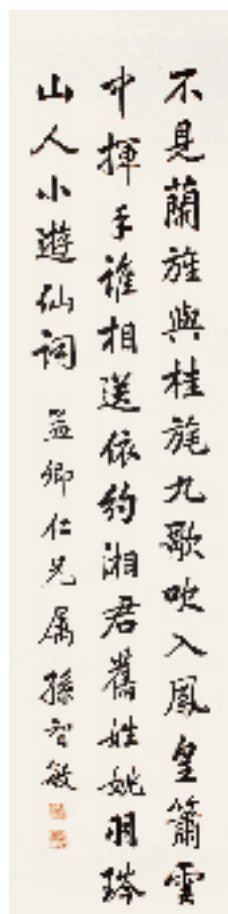 不見蘭旌與桂旄九歌吹入鳳皇簫雲
中揮手誰相送依約湘君舊姓姚羽琌
山人小遊仙詞 孟卿仁兄属孫智敏